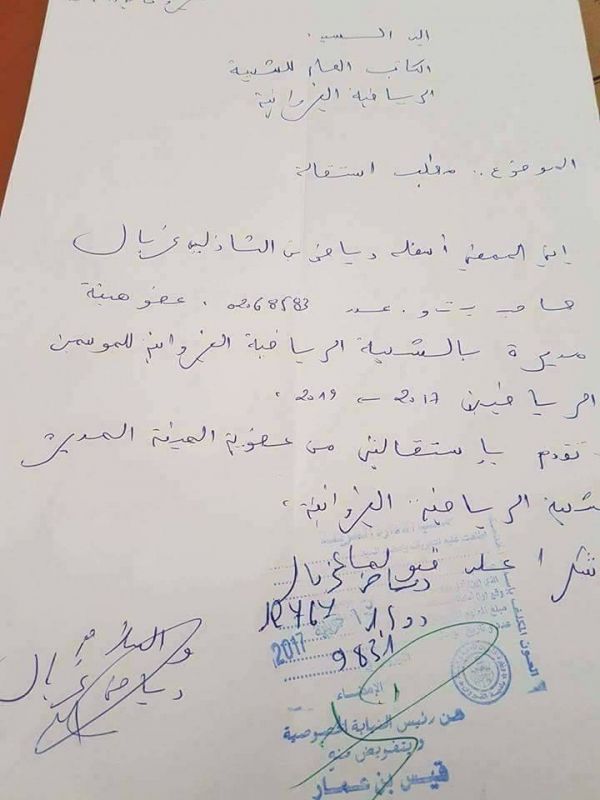 الى السيد :
الكاتب العام للشبيبة
الرياضية القيروانية
الموضوع : مطلب استقالة
إني الممضي أسفله رياض بن الشاذلي غربال
صاحب ب ت و. عدد 02068583 . عضو هيئة
مديرة بالشبيبة الرياضية القيروانية للموسمين
الرياضيين 2017 – 2019 .
تقدم بإستقالتي من عضوية الهيئة المديرة
الرياضية القيروانية .
شكرا على قبولها
رياض غربال
2017
9831
العون المكلف
الإمضاء
عن رئيس النيابة الخصوصية
وبتفويض منه
قيس بن عمار
والسلام
رياض غربال